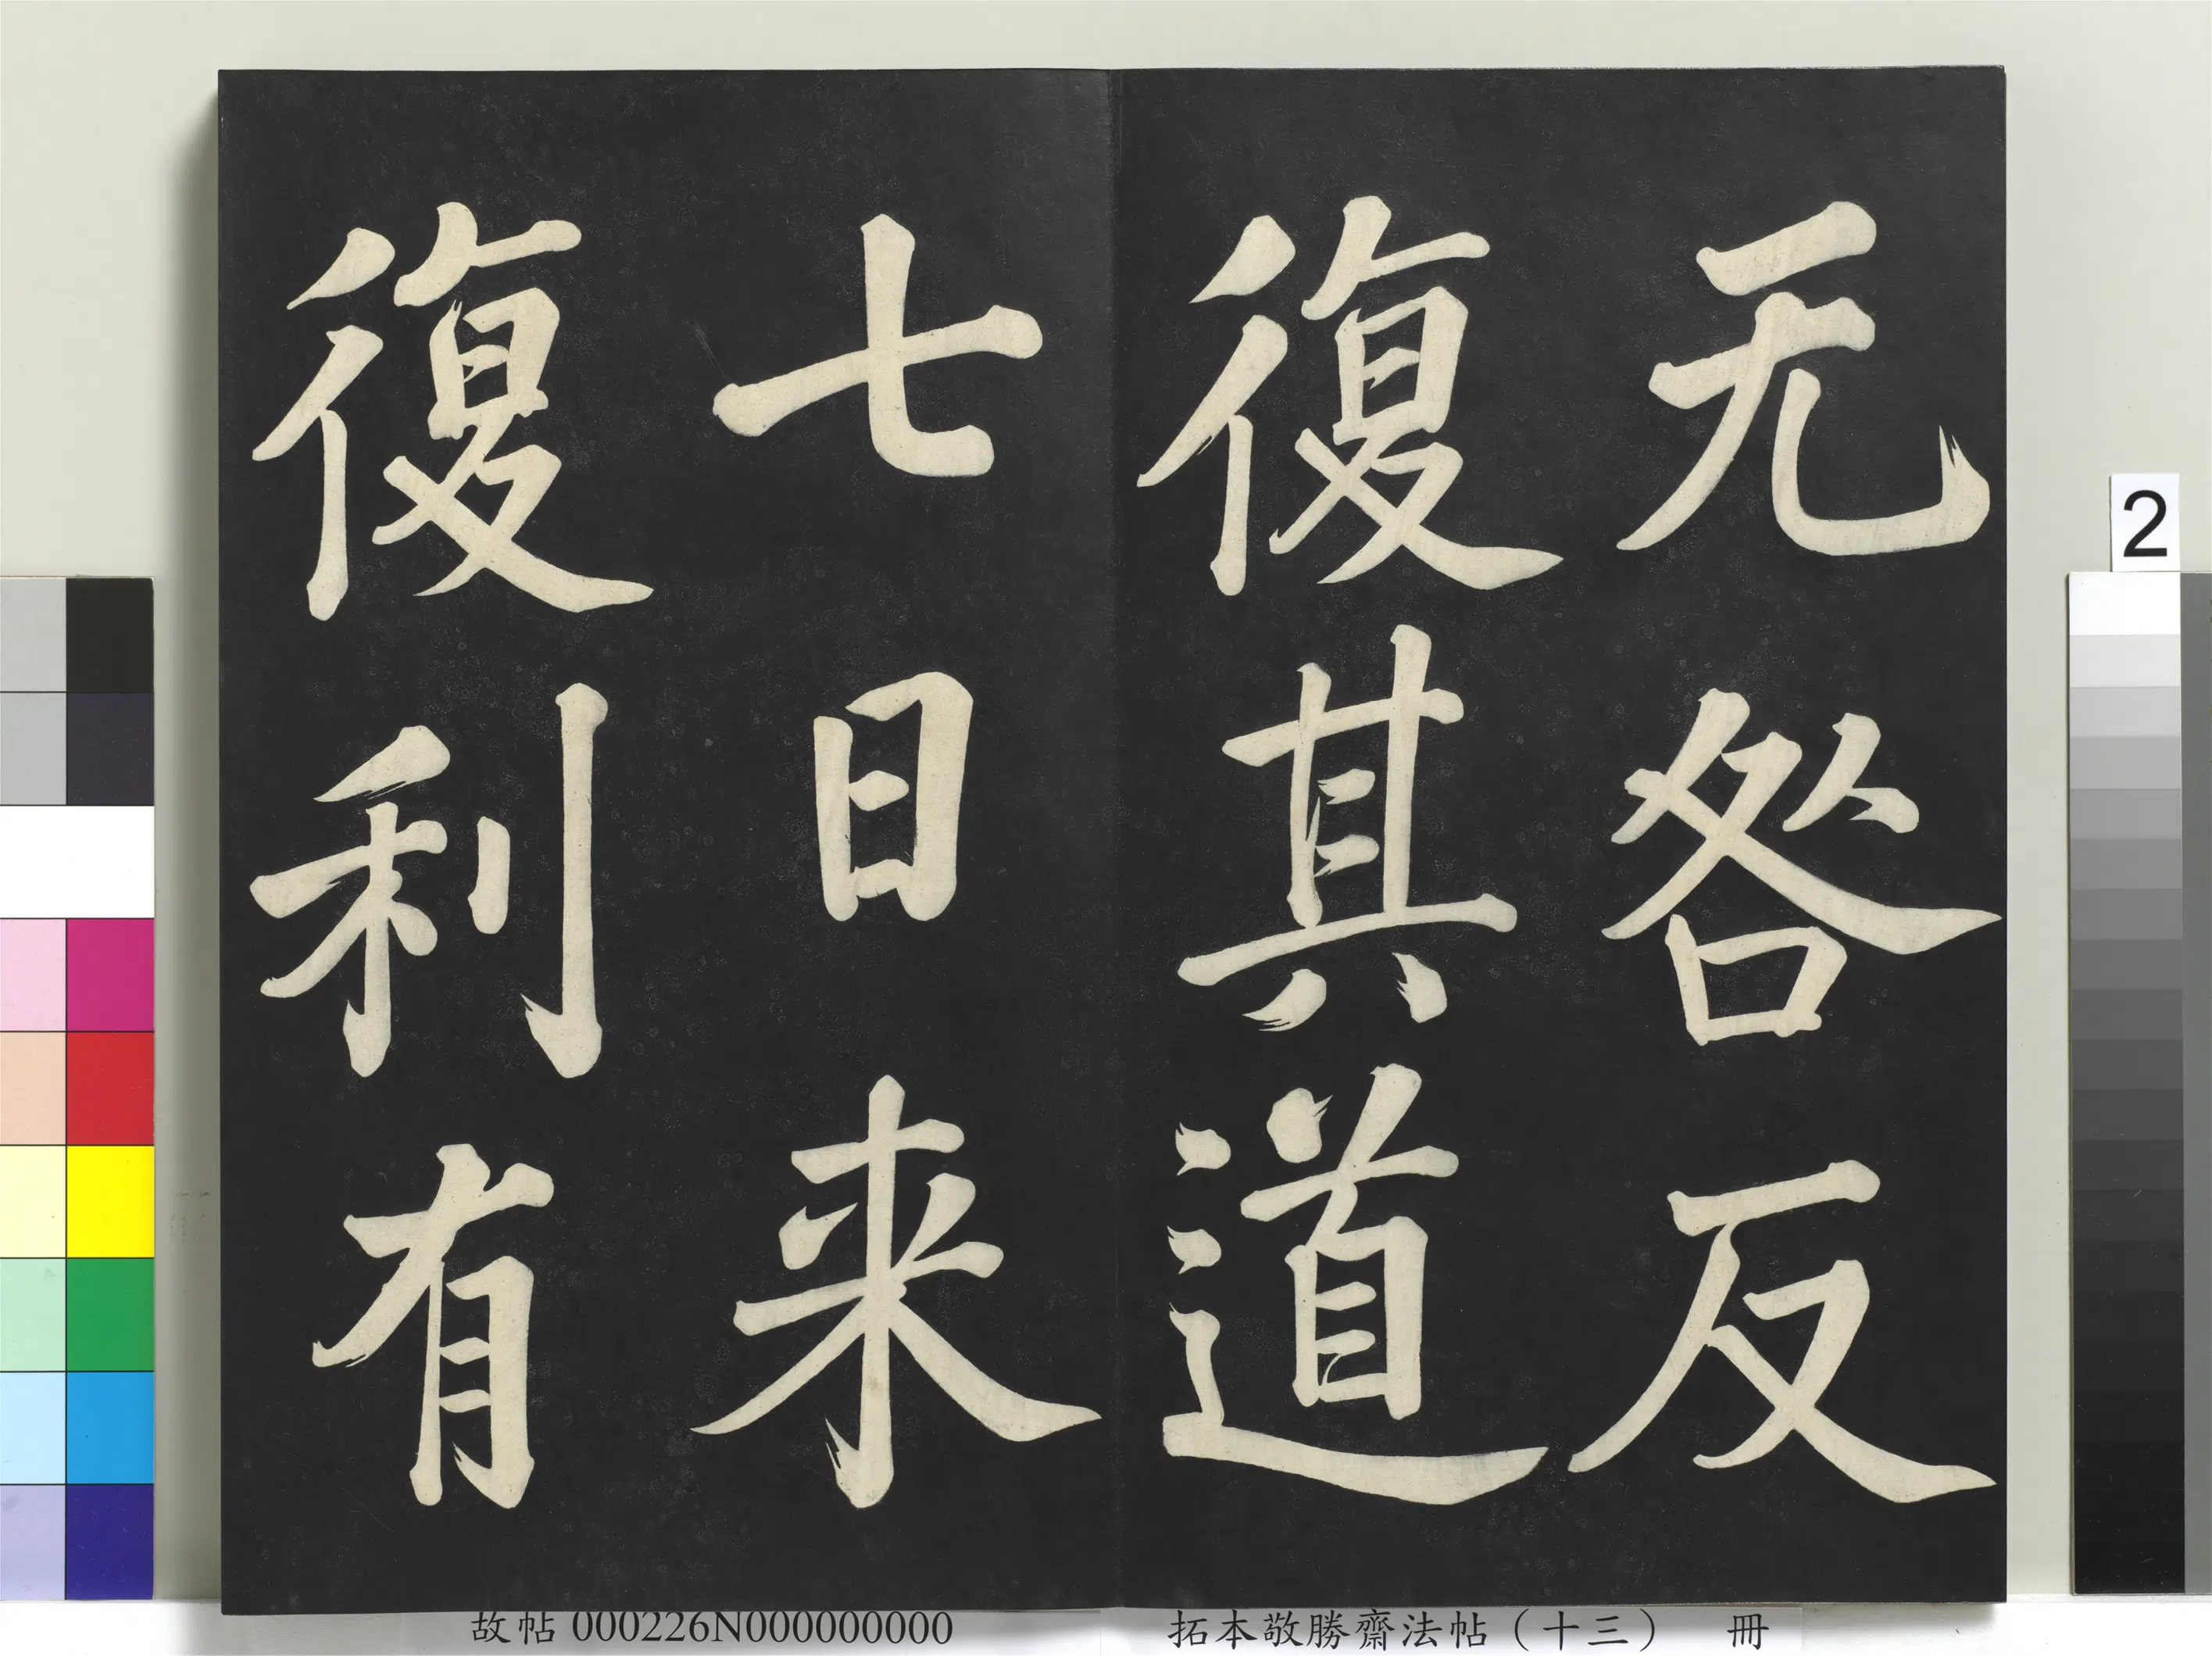 无咎反
復其道
七日来
復利有
2
故帖 000226N000000000
拓本敬勝齋法帖(十三) 冊